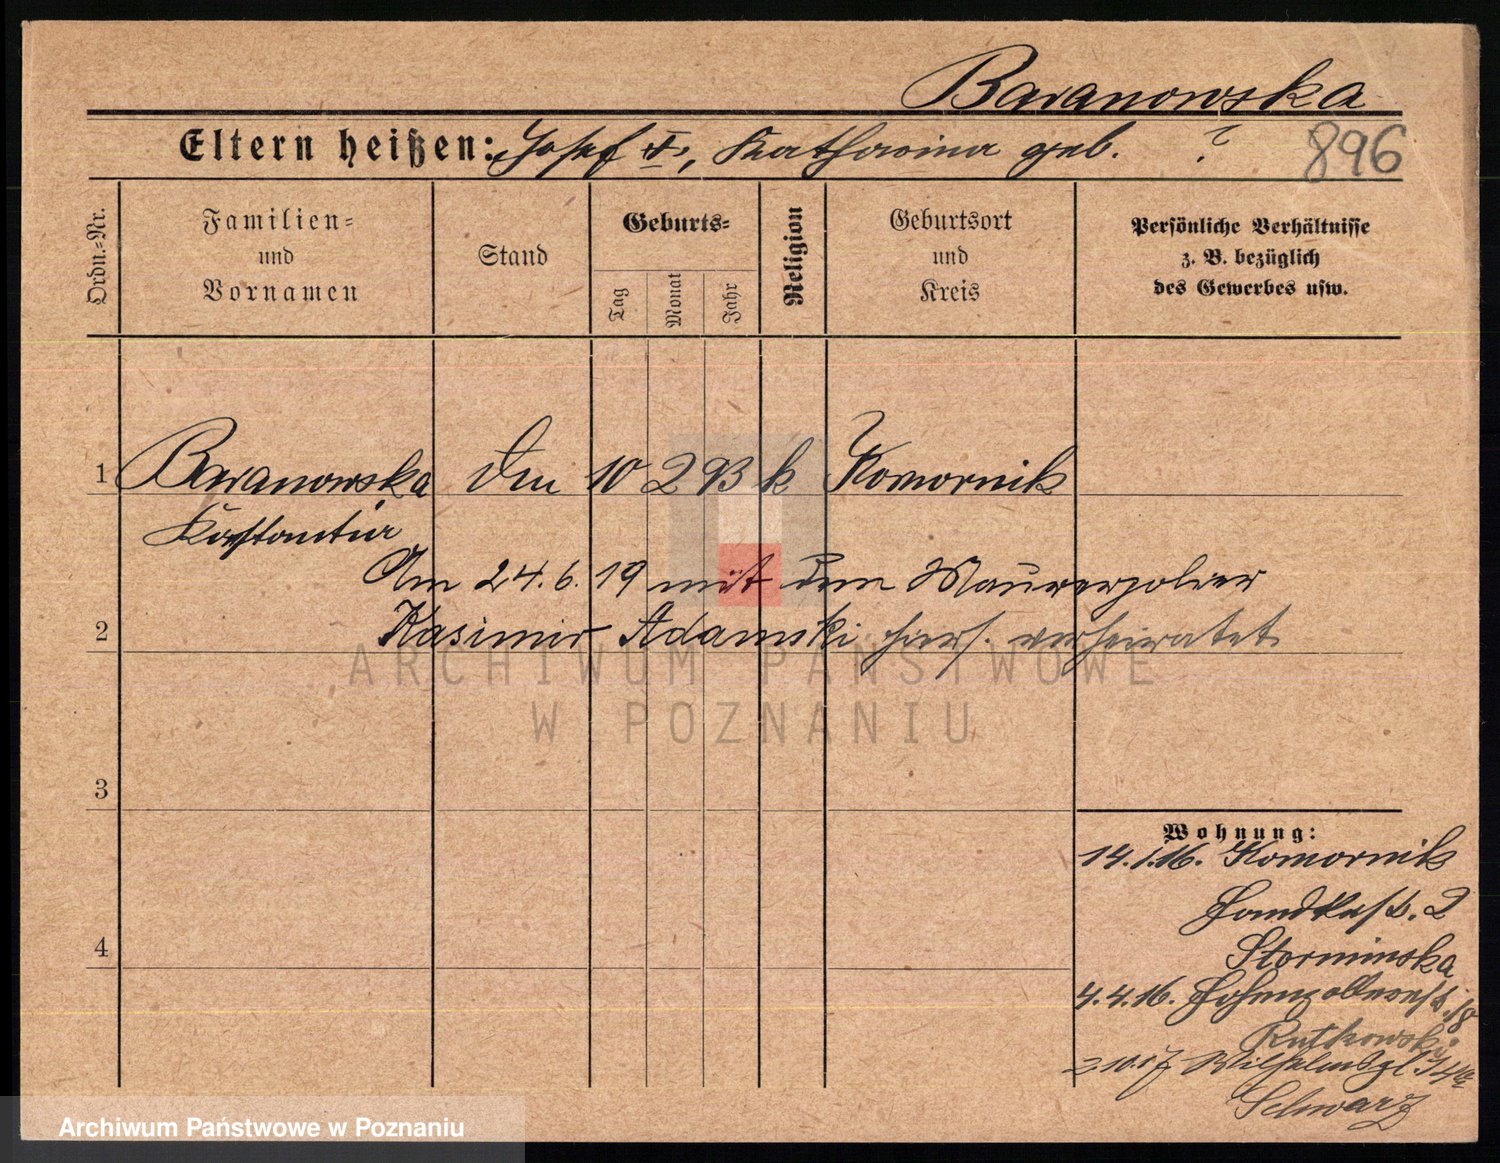 Baranowska
Eltern heißen: Josef †, Katharina geb. ?
896
Ordn.-Nr.
Familien-
und
Vornamen
Stand
Geburts-
Tag
Monat
Jahr
Religion
Geburtsort
und
Kreis
Persönliche Verhältnisse
z. B. bezüglich
des Gewerbes usw.
1 Baranowska 10 2 93 k Komornik
Konstantia
Am 24.6.19 mit dem Maurerpolier
2 Kasimir Adamski hiers. verheiratet
ARCHIWUM PAŃSTWOWE
W POZNANIU
3
4
Wohnung:
14.1.16. Komornik
2
Storminska
4.4.16. Hohenzollernst. 18
Rutkowski
2.10.17
Schwarz
Archiwum Państwowe w Poznaniu